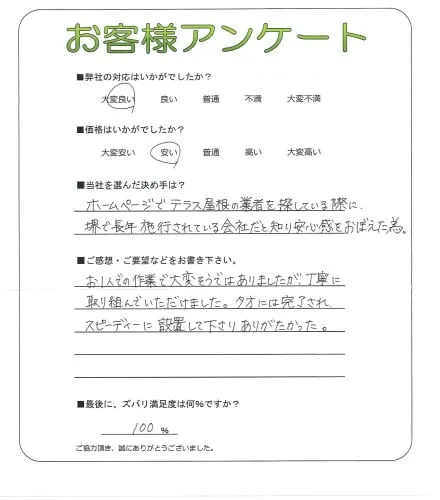 お客様アンケート
■弊社の対応はいかがでしたか？
大変良い 良い 普通 不満 大変不満
■価格はいかがでしたか？
大変安い 安い 普通 高い 大変高い
■当社を選んだ決め手は？
ホームページでテラス屋根の業者を探している際に、
堺で長年施行されている会社だと知り安心感をおぼえた為。
■ご感想・ご要望などをお書き下さい。
お1人での作業で大変そうではありましたが、丁寧に
取り組んでいただけました。夕方には完了され、
スピーディーに設置して下さりありがたかった。
■最後に、ズバリ満足度は何％ですか？
100 ％
ご協力頂き、誠にありがとうございました。